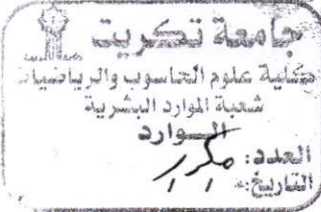 جامعة تكريت
كلية علوم الحاسوب والرياضيات
شعبة الموارد البشرية
الـــوارد
العدد: مكرر
التاريخ: / /